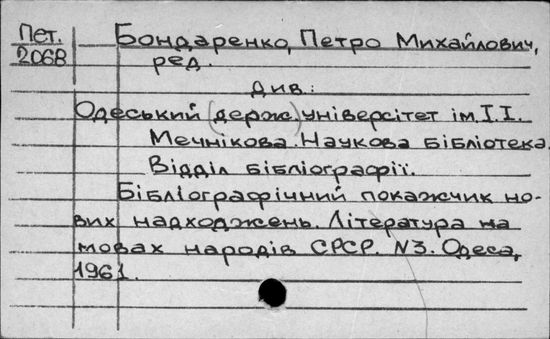 Пет.
2068
Бондаренко, Петро Михайлович,
ред.
Див:
Одеський (держ.) університет ім. І.І.
Мечнікова. Наукова бібліотека.
Відділ бібліографії.
Бібліографічний покажчик но-
вих надходжень. Література на
мовах народів СРСР. N3. Одеса,
1961.